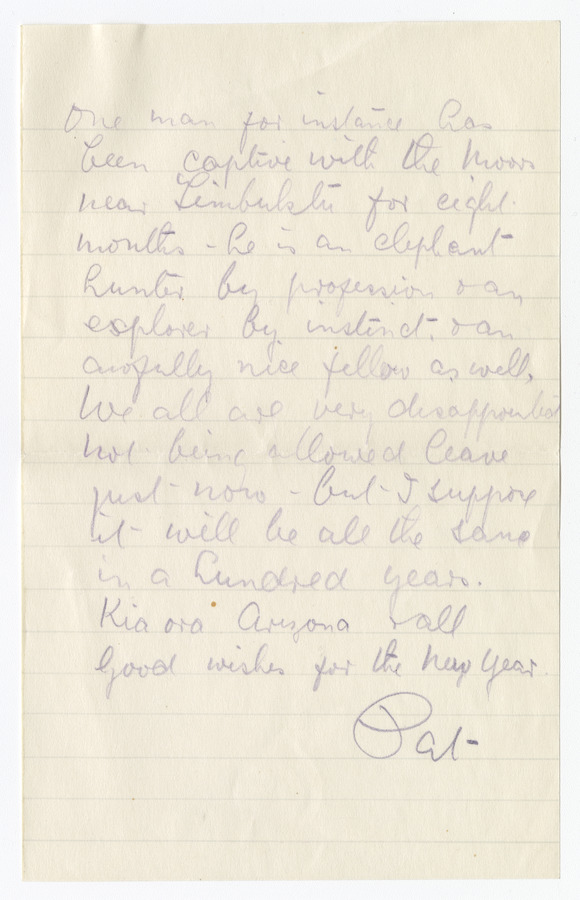 One man for instance has
been captive with the Moors
near Timbuktu for eight
months - he is an elephant
hunter by profession & an
explorer by instinct. & an
awfully nice fellow as well.
We all are very disappointed
not being allowed leave
just now - but I suppose
it will be all the same
in a hundred years.
Kia ora Arizona & all
Good wishes for the New Year.
Pat-